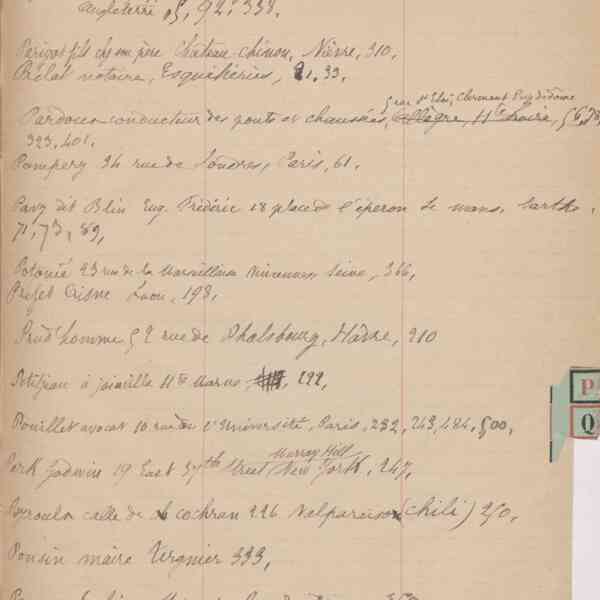 Angleterre 95, 92, 338.
Périvot fils chez son père Château-Chinon, Nièvre, 310.
Prélat notaire, Esquéheries, 21.33.
5 rue St Eloi, Clermont Puy de dôme
Pardoux conducteur des ponts et chaussées, Allègre, Hte Loire, 56,
323, 401.
Pampery 34 rue de Londres, Paris, 61.
Pavy dit Blin Eug. Frédéric 18 place de l'éperon Le mans, Sarthe.
71, 73, 89,
Potonié 23 rue de la Marseillaise Vincennes Seine, 366,
Préfet Aisne Laon, 198,
Prud'homme 52 rue de Phalsbourg, Hâvre, 210
Petitjean à joinville Hte Marne, 292,
Pouillet avocat 10 rue de l'Université, Paris, 232, 243, 484, 500,
Murray Hill
Park Godwin 19 East 37th Street New York, 247,
Peyroulx calle de cochran 226 Valparaiso (Chili) 250,
Ponsin maire Tergnier 333,
P
Q